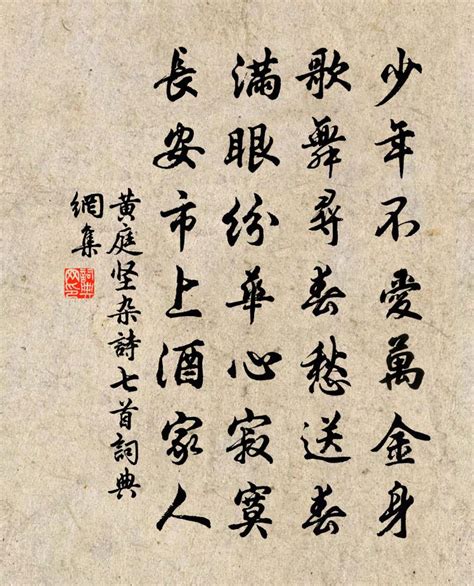 少年不愛萬金身
歌舞尋春愁送春
滿眼紛華心寂寞
長安市上酒家人
黄庭坚杂詩七首詞典
網集